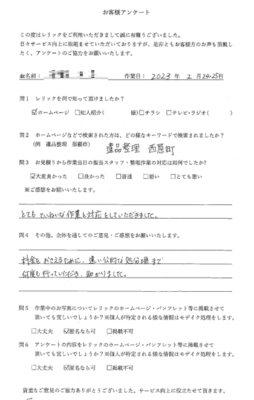 お客様アンケート
この度はレリックをご利用いただきまして誠に有難うございました。
日々サービス向上に取組ませていただいておりますが、是非ともお客様方のお声を頂戴したく、アンケートのご協力をお願いいたします。
作業日: 2023年 2月24-25日
問1 レリックを何で知って頂けましたか?
☑ホームページ □知人紹介( 様) □チラシ □テレビ・ラジオ( )
問2 ホームページなどで検索された方は、どの様なキーワードで検索されましたか?
(例 遺品整理 那覇市) 遺品整理 西原町
問3 お見積りから作業当日の担当スタッフ・整理作業の対応は如何でしたか?
☑大変良かった □良かった □普通 □悪い □とても悪い
※ご感想をお願いいたします。
とても ていねいな作業と対応をしていただきました。
問4 その他、全体を通してのご意見・ご感想をお願いいたします。
料金をおさえるために、遠い公的な処分場まで
何度も行っていただき、助かりました。
問5 作業中のお写真についてレリックのホームページ・パンフレット等に掲載させて
頂いても宜しいでしょうか?※個人が特定される様な情報はモザイク処理をします。
□大丈夫 ☑匿名なら可 □掲載不可
問6 アンケートの内容をレリックのホームページ・パンフレット等に掲載させて
頂いても宜しいでしょうか?※個人が特定される様な情報はモザイク処理をします。
□大丈夫 ☑匿名なら可 □掲載不可
貴重なご意見のご協力ありがとうございました。サービス向上に役立たせて頂きます。